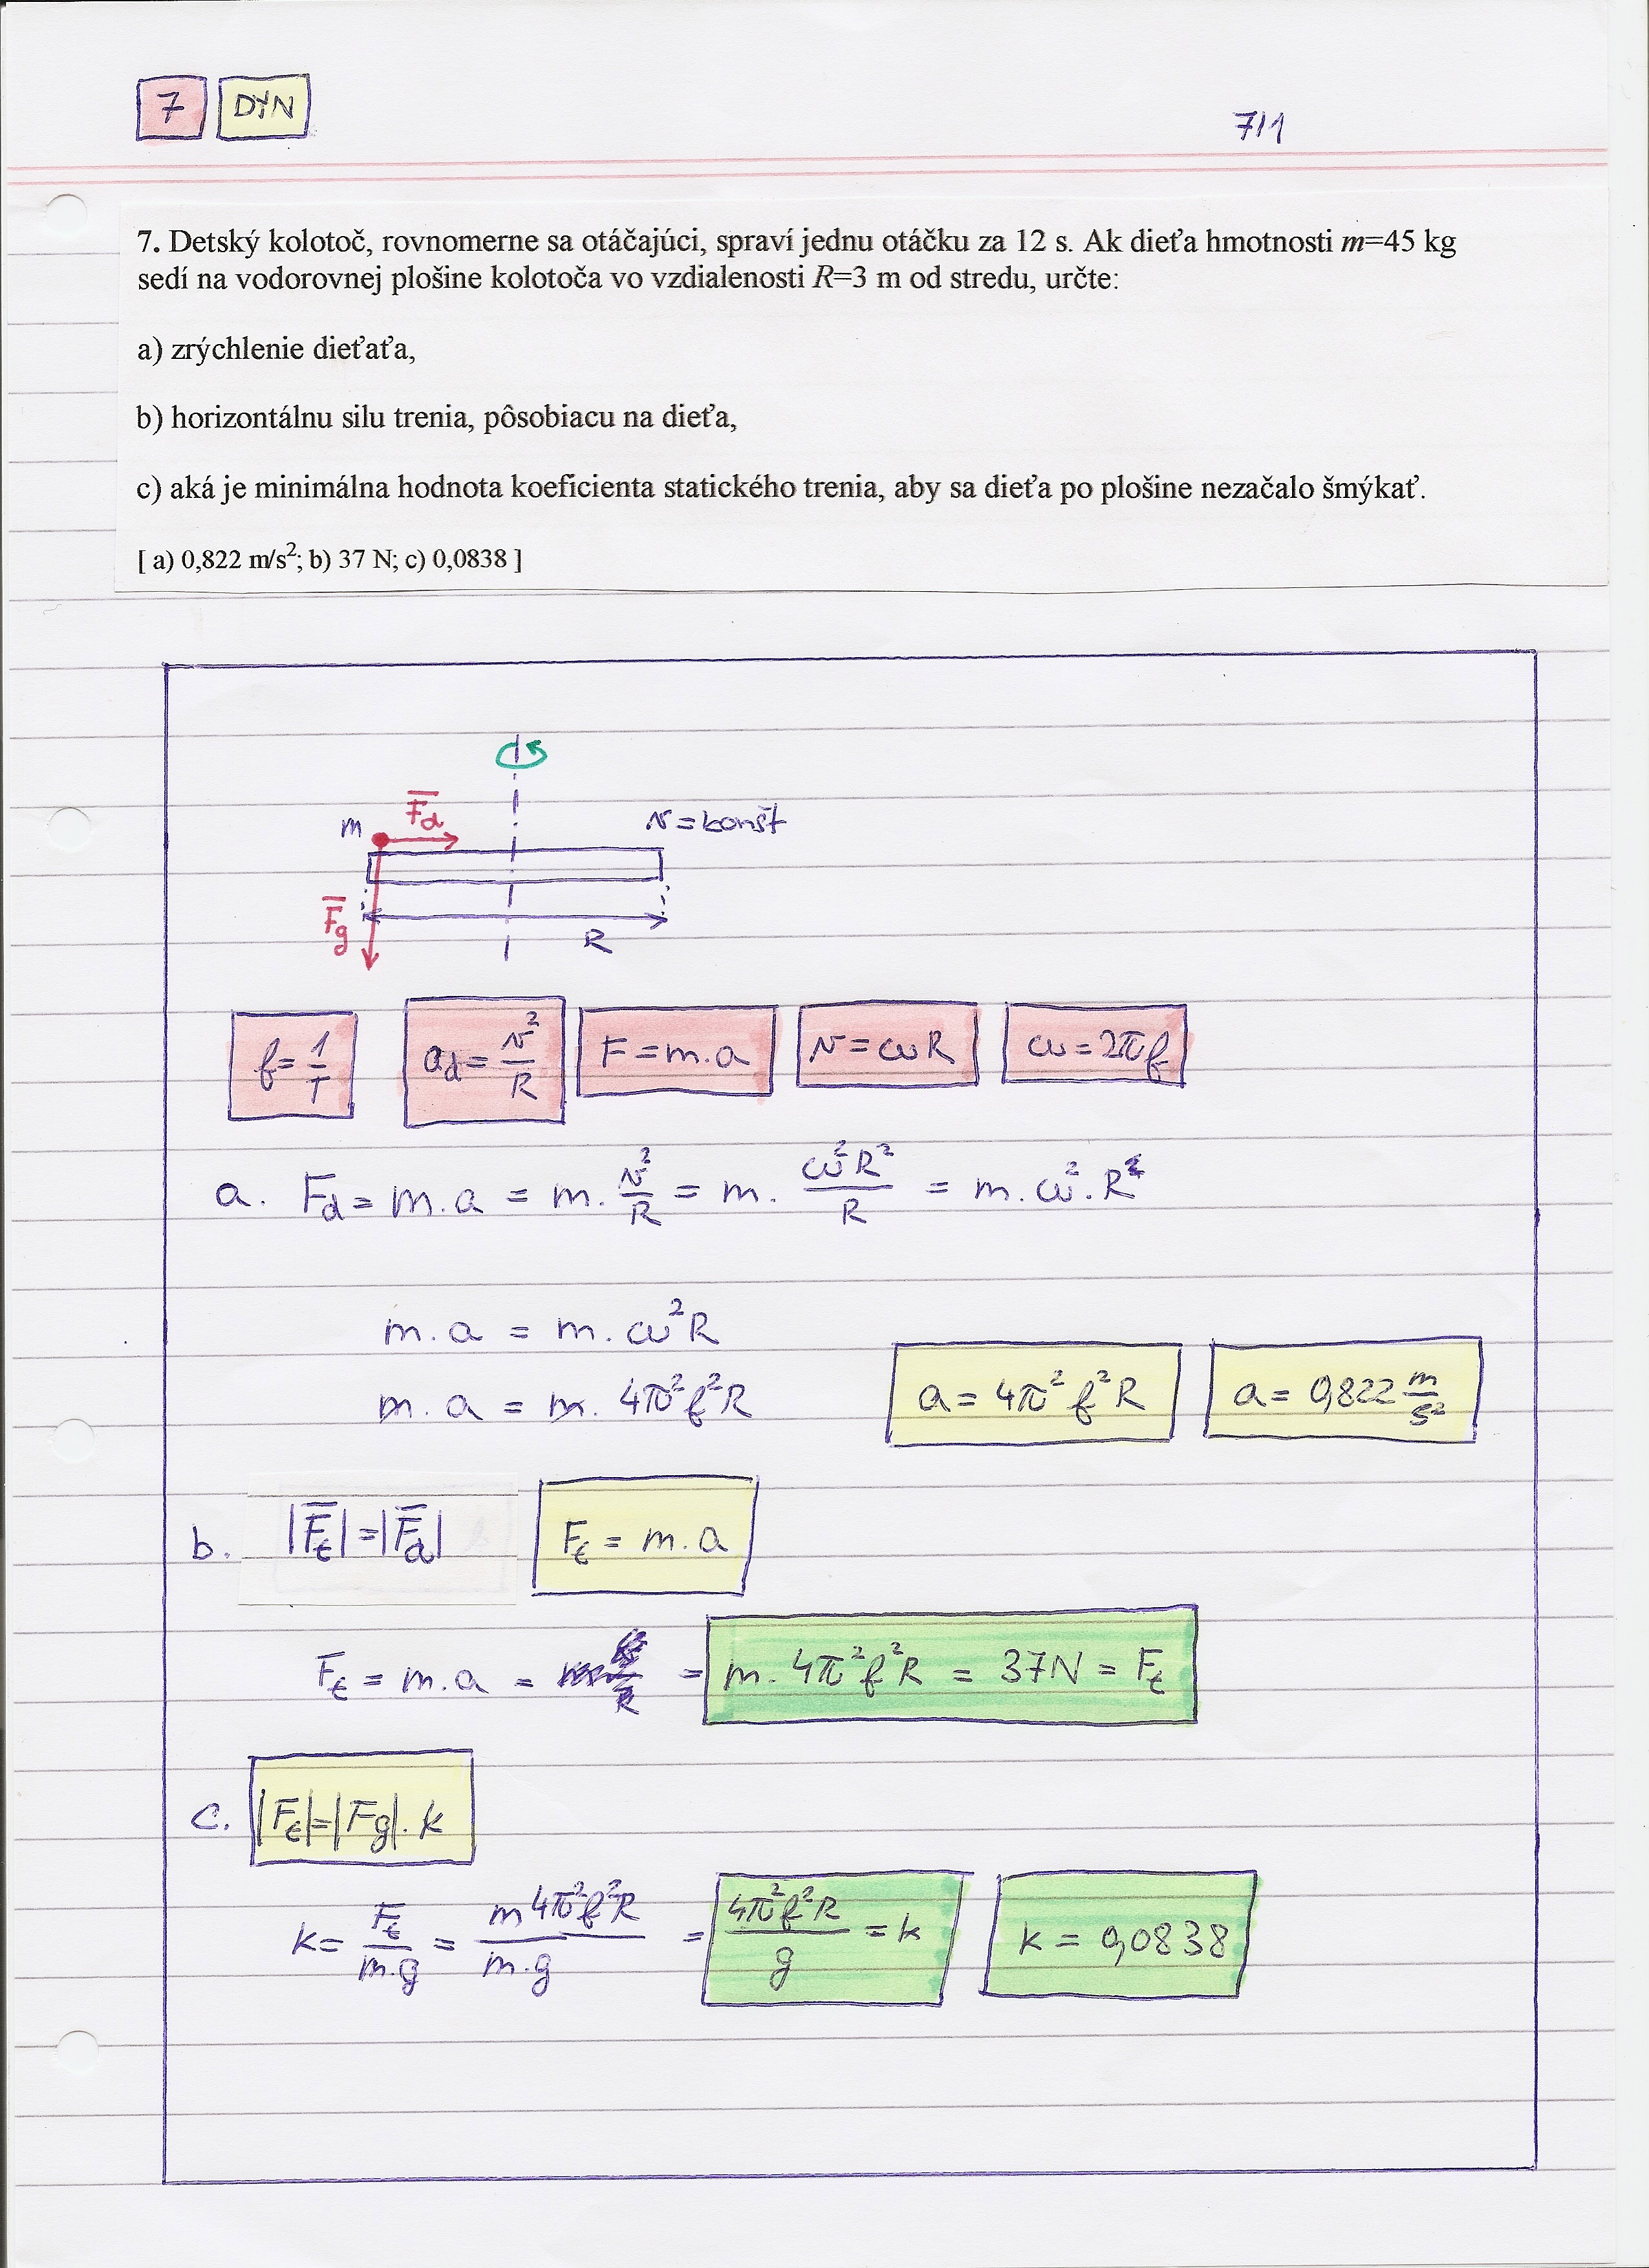 7 DYN
7/1
7. Detský kolotoč, rovnomerne sa otáčajúci, spraví jednu otáčku za 12 s. Ak dieťa hmotnosti m=45 kg
sedí na vodorovnej plošine kolotoča vo vzdialenosti R=3 m od stredu, určte:
a) zrýchlenie dieťaťa,
b) horizontálnu silu trenia, pôsobiacu na dieťa,
c) aká je minimálna hodnota koeficienta statického trenia, aby sa dieťa po plošine nezačalo šmýkať.
[ a) 0,822 m/s²; b) 37 N; c) 0,0838 ]
m F̅d v = konšt
F̅g
R
f = 1/T ad = v²/R F = m.a v = ωR ω = 2πf
a. Fd = m.a = m. v²/R = m. ω²R²/R = m. ω². R
m.a = m. ω²R
m.a = m. 4π²f²R a = 4π²f²R a = 0,822 m/s²
b. |F̅t| = |F̅d| Ft = m.a
Ft = m.a = = m. 4π²f²R = 37N = Ft
c. |Ft| = |Fg|. k
k = Ft/m.g = m4π²f²R/m.g = 4π²f²R/g = k k = 0,0838